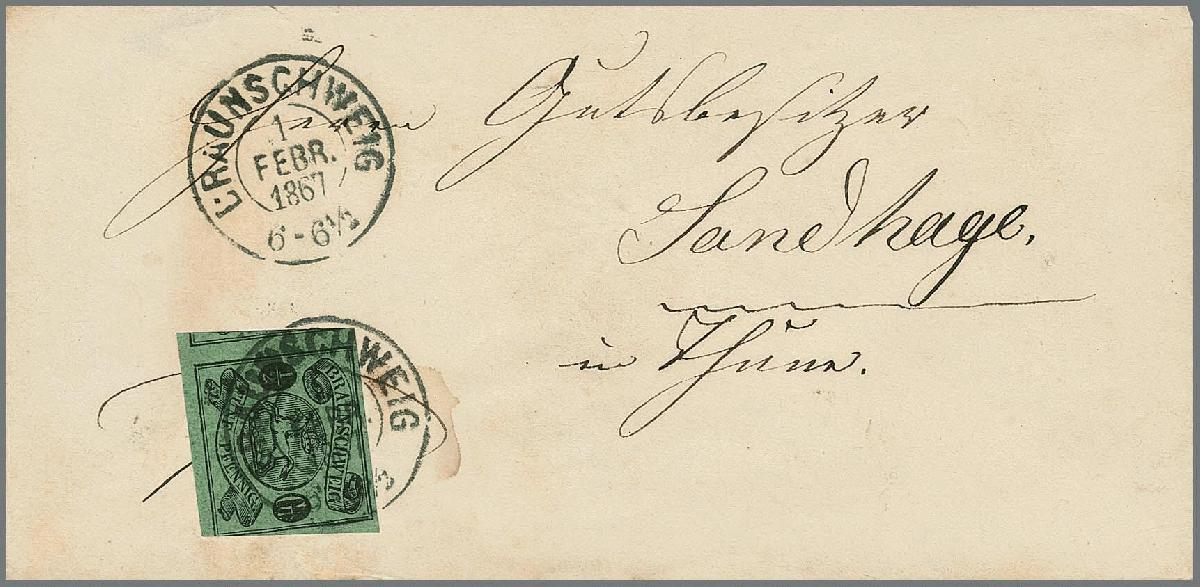 BRAUNSCHWEIG
1
FEBR.
1867
6-6½
Herrn Gutsbesitzer
Sandhage,
in Thune.
SCHWEIG
½
BRAUNSCHWEIG
PFENNIG